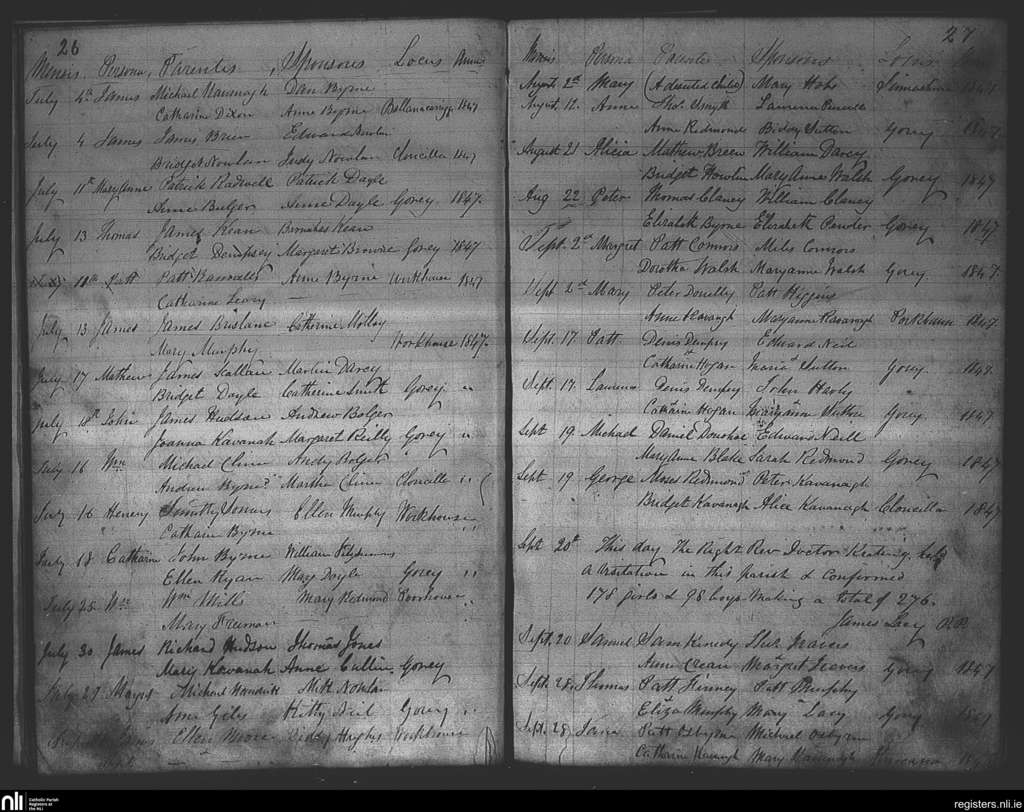 26
Mensis Persona Parentes Sponsores Locus Annus
July 4th James Michael Kavanagh Dan Byrne
Catharine Dixon Anne Byrne 1847
July 4 James James Brien Edward Nowlan
Bridget Nowlan Judy Nowlan Cloncilla 1847
July 11th MaryAnne Patrick Radwell Patrick Dayle
Anne Bulger Anne Dayle Gorey 1847.
July 13 Thomas James Kean Barnabas Kean
Bridget Dempsey Margaret Browne Gorey 1847
11th Patt Patt Anne Byrne Workhouse 1847
Catharine Leary —
July 13 James James Brislane Catherine Molloy
Mary Murphy Workhouse 1847.
July 17 Mathew James Scallan Martin Darcy
Bridget Dayle Catherine Smith Gorey "
July 18th John James Hudson Andrew Bolger
Joanna Kavanah Margaret Reilly Gorey "
July 16 Wm Michael Cline Andy Bolger
Andrew Byrne Martha Cline Cloncilla "
July 16 Henery Timothy Jones Ellen Murphy Workhouse
Catharn Byrne
July 18 Catharine John Byrne William
Ellen Ryan May Doyle Gorey "
July 25 Wm Wm Mills Mary Redmond Poorhouse
Mary Freeman
July 30 James Richard Hudson Thomas Jones
Mary Kavanah Anne Cullin Gorey
July 29 Michael Mike Nowlan
Ann Giles Kitty Neil Gorey "
Ellen Moore Biddy Hughes Workhouse
27
Mensis Persona Parentes Sponsores Locus
August 2nd Mary (A deserted child) Mary 1847
August 12. Anne Thos. Smyth
Anne Redmond Biddy Sutton Gorey 1847
August 21 Alicia Mathew Breen William Darcy
Bridget Howlin MaryAnne Walsh Gorey 1847
Aug 22 Peter Thomas Clancy William Clancy
Elizabeth Byrne Elizabeth Pender Gorey 1847
Sept. 2nd Margret Patt Connors Miles Connors
Dorotha Walsh Maryanne Walsh Gorey 1847.
Sept 2nd Mary Peter Donelly Patt Higgins
Anne Kavanagh Maryanne Kavanagh Workhouse 1847.
Sept. 17 Patt Denis Dempsey Edward Neil
Catharine Hogan Maria Sutton Gorey 1847.
Sept. 17. Laurence Denis Dempsey John
Catharine Hogan Maryanne Gorey 1847
Sept 19. Michael Daniel Donohoe Edward
MaryAnne Blake Sarah Redmond Gorey 1847
Sept 19 George Moses Redmond Peter Kavanagh
Bridget Kavanagh Alice Kavanagh Cloncilla 1847
Sept 20th This day The Right Rev Doctor Keating held
a visitation in this parish & confirmed
178 girls & 98 boys making a total of 276.
James Lacy P.P.
Sept. 20 Samuel Sam Kennedy
Anne Crean Margret Gorey 1847
Sept. 28. Thomas Patt Kinney Patt Murphy
Eliza Murphy Mary Lacy Gorey 1847
Sept. 28 Patt Osbyrne Michael Osbyrne
Catharine Kavanagh Mary Kavanagh
nli Catholic Parish Registers at the NLI
registers.nli.ie